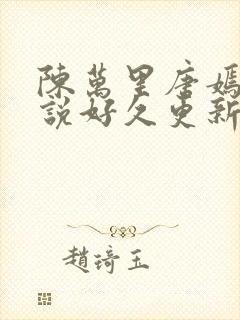 陳萬里唐嫣
說好久更新
趙琦玉